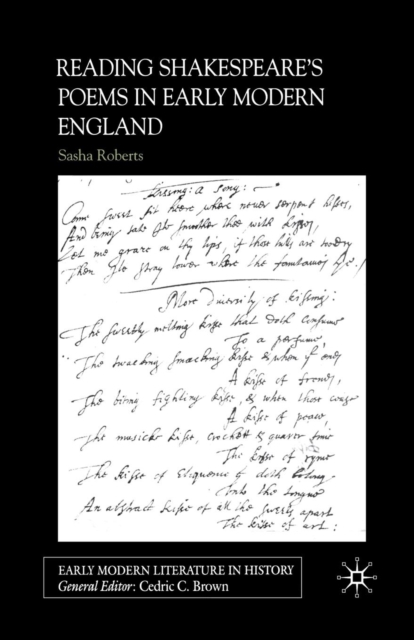 READING SHAKESPEARE'S
POEMS IN EARLY MODERN
ENGLAND
Sasha Roberts
Kissing: A Song:
Come sweet sit heere where never serpent hisses,
And being sate Ile smoother thee with kisses,
Let me graze on thy lips, if those hills are
Then Ile stray lower where the fountaines
More Diversity of kissing:
The sweetly melting kisse that doth consume
To a perfume,
The smacking kisse & when it ends
A kisse of frends,
The biting fighting kisse, & when those cease
A kisse of peace,
The musicke kisse, crochet & quaver time
The kisse of ryme
The kisse of Eloquence doth belong
Unto the tongue
An abstract kisse of all the sweets apart
The kisse of art:
EARLY MODERN LITERATURE IN HISTORY
General Editor: Cedric C. Brown